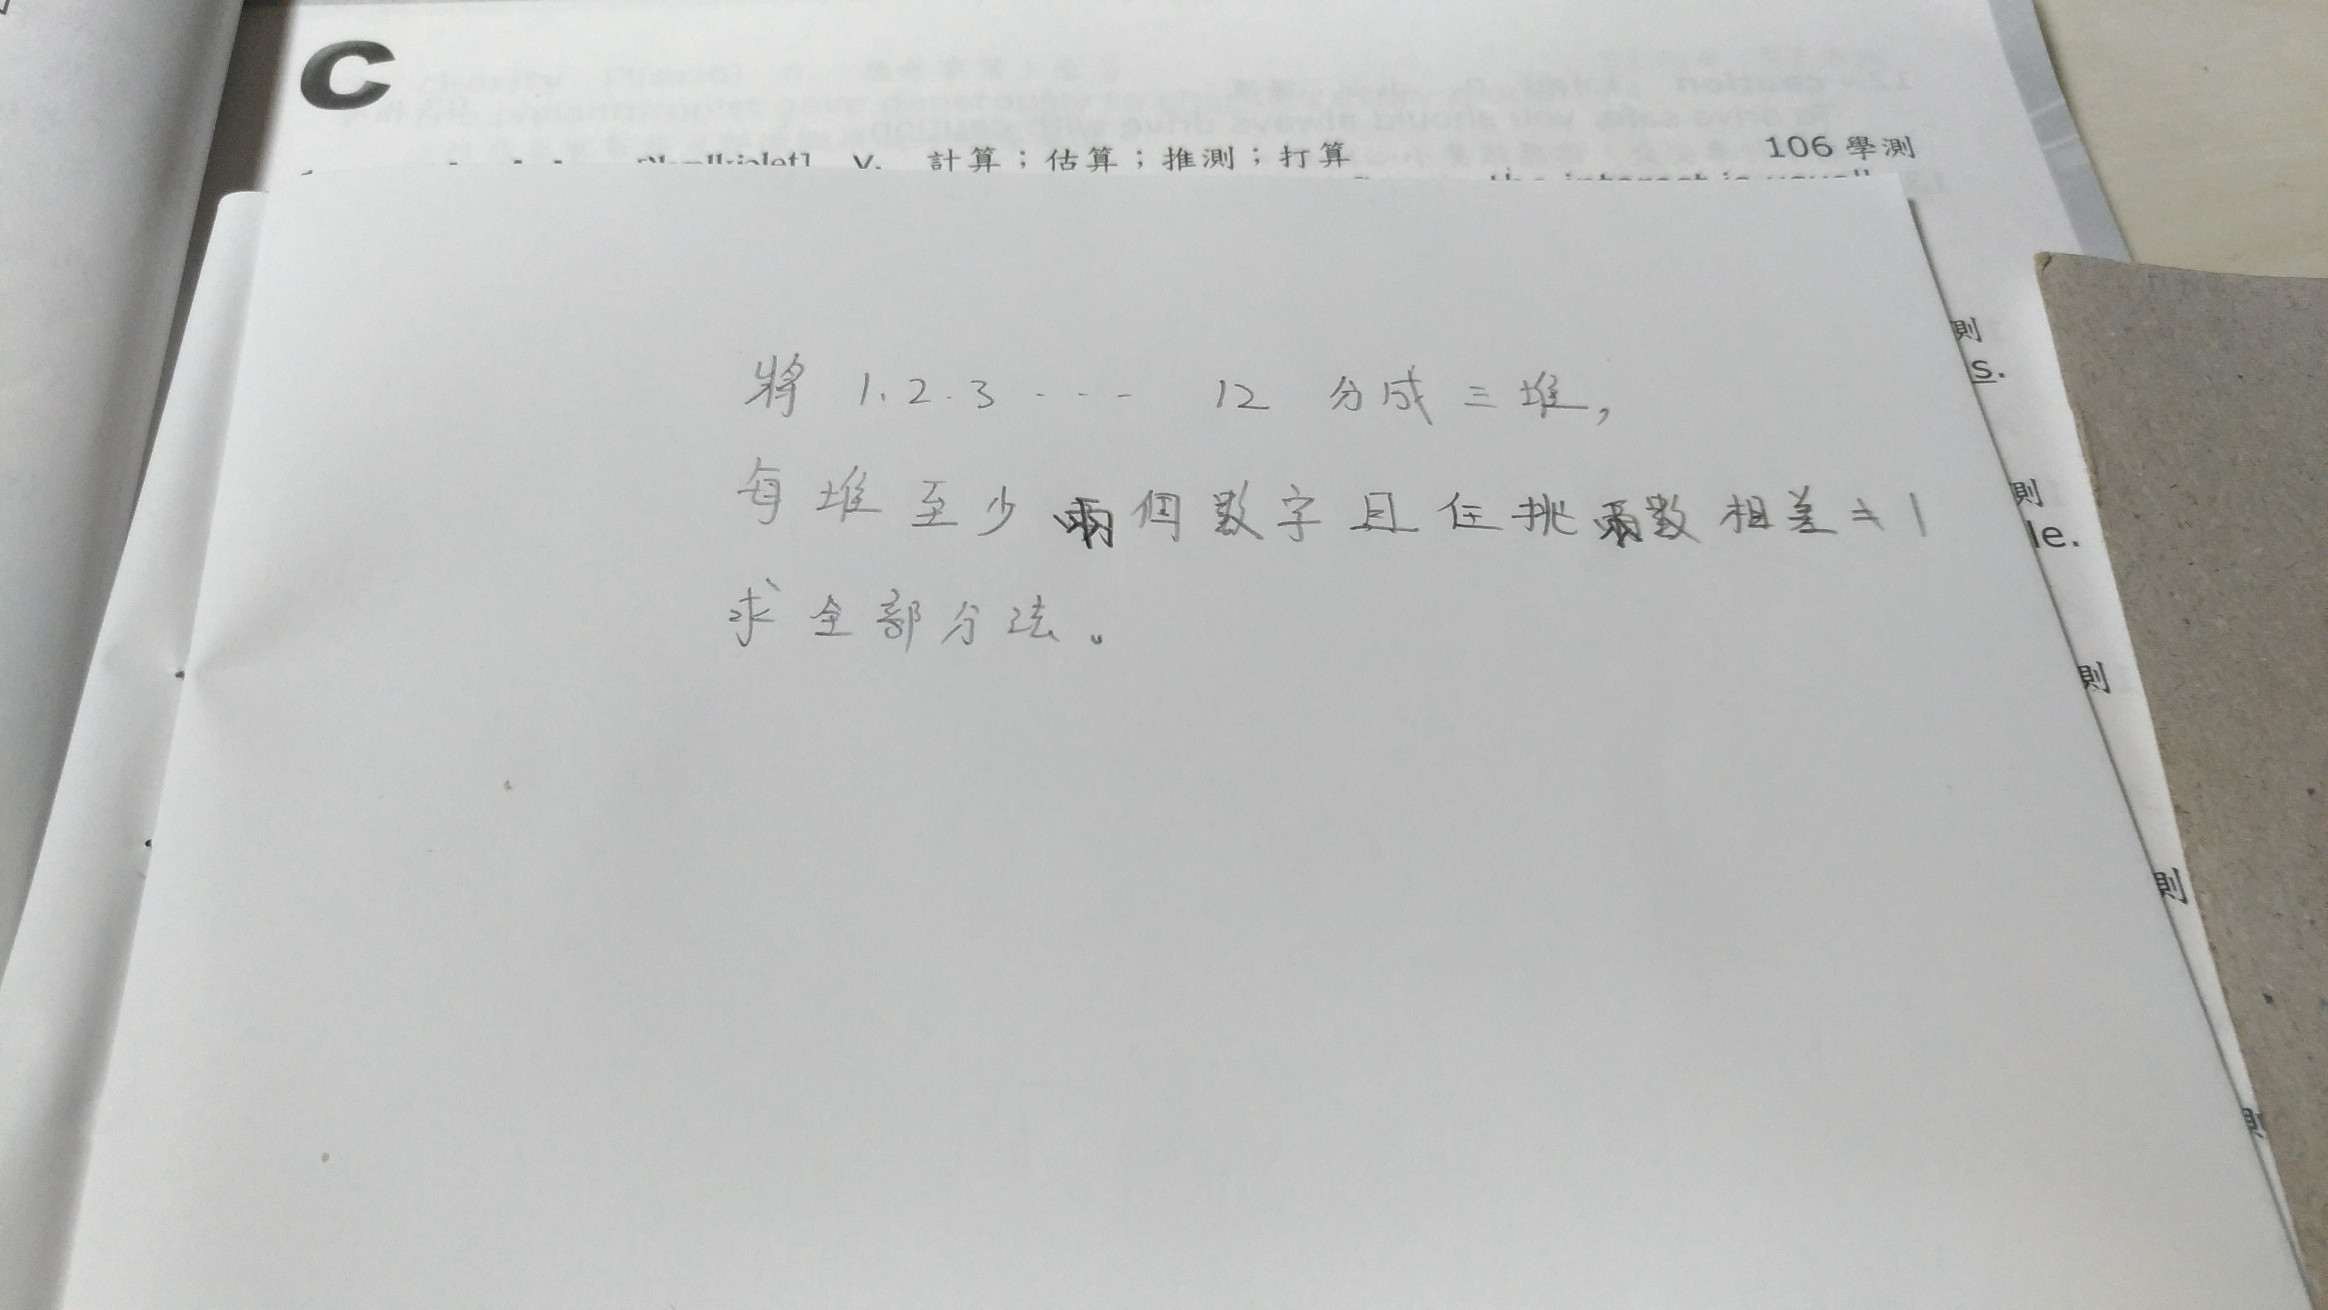 C
106 學測
v. 計算；估算；推測；打算
將 1.2.3 ... 12 分成三堆,
每堆至少兩個數字且任挑兩數相差≠1
求全部分法。
則
s.
則
le.
則
則